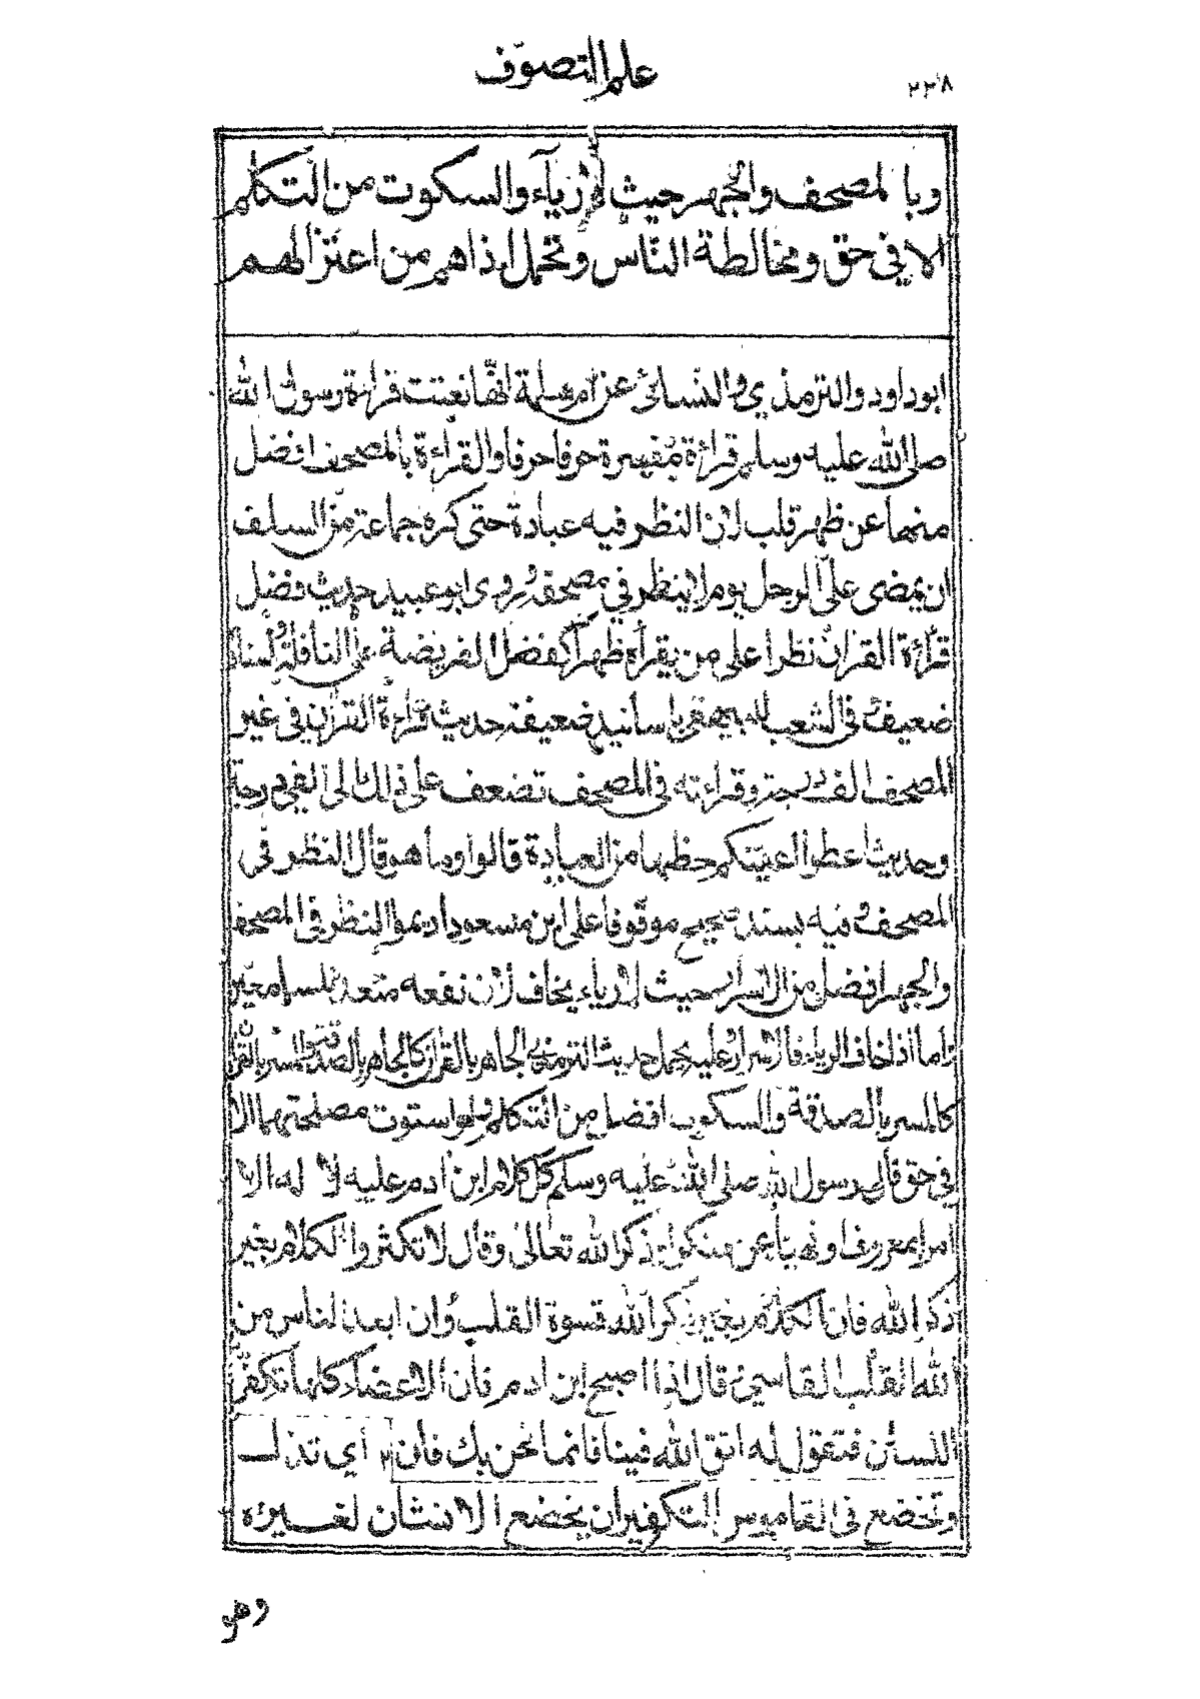 علم التصوّف
٢٣٨
وبالمصحف والجهر حيث لا رياء والسكوت من التكلم
الا في حق ومخالطة الناس وتحمل اذاهم من اعتزالهم
ابوداود والترمذي والنسائي عن ام سلمة انها نعتت قراءة رسول الله
صلى الله عليه وسلم قراءة مفسرة حرفا حرفا والقراءة بالمصحف افضل
منها عن ظهر قلب لان النظر فيه عبادة حتى كره جماعة من السلف
ان يمضى على الرجل يوم لا ينظر في مصحفه وروى ابو عبيد حديث فضل
قراءة القران نظرا على من يقرأه ظهرا كفضل الفريضة على النافلة وسنده
ضعيف وفى الشعب للبيهقى باسانيد ضعيفة حديث قراءة القران في غير
المصحف الف درجة وقراءته فى المصحف تضعف على ذلك الى الفي درجة
وحديث اعطوا اعينكم حظها من العبادة قالوا وما هو قال النظر في
المصحف وفيه بسند صحيح موقوفا على ابن مسعود اديموا النظر في المصحف
والجهر افضل من الاسرار حيث لا رياء يخاف لان نفعه متعد للسامعين
واما اذا خاف الرياء فالاسرار وعليه يحمل حديث الترمذي الجاهر بالقران كالجاهر بالصدقة والمسر بالقران
كالمسر بالصدقة والسكوت افضل من التكلم ولو استوت مصلحتهما الا
في حق قال رسول الله صلى الله عليه وسلم كل كلام ابن ادم عليه لا له الا
امرا بمعروف او نهيا عن منكر او ذكر الله تعالى وقال لا تكثروا الكلام بغير
ذكر الله فان الكلام بغير ذكر الله قسوة القلب وان ابعد الناس من
الله القلب القاسي وقال اذا اصبح ابن ادم فان الاعضاء كلها تكفر
اللسان فتقول له اتق الله فينا فانما نحن بك فان ٢ أي تذلك
وتخضع فى القاموس التكفير ان يخضع الانسان لغيره
وهو